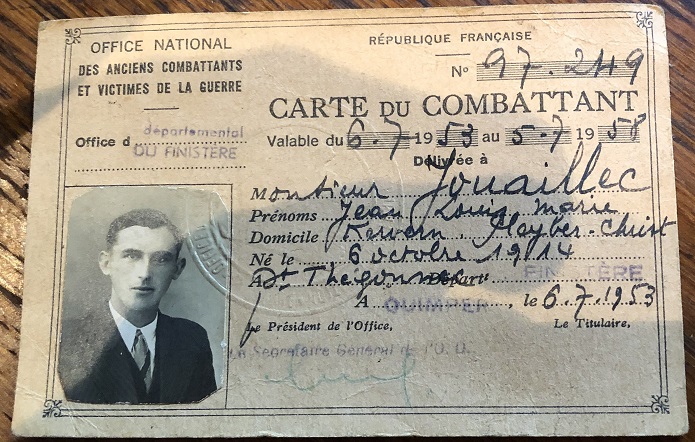 OFFICE NATIONAL
DES ANCIENS COMBATTANTS
ET VICTIMES DE LA GUERRE
Office d départemental
DU FINISTÈRE
RÉPUBLIQUE FRANÇAISE
No 97.249
CARTE DU COMBATTANT
Valable du 6.7 1953 au 5.7 1958
Délivrée à
Monsieur Jouaillec
Prénoms Jean Louis Marie
Domicile Kervern Pleyber-Christ
Né le 6 octobre 1914
A St Thégonnec Départt FINISTÈRE
A QUIMPER, le 6.7.1953
Le Président de l'Office,
Le Titulaire,
Le Secrétaire Général de l'O. D.